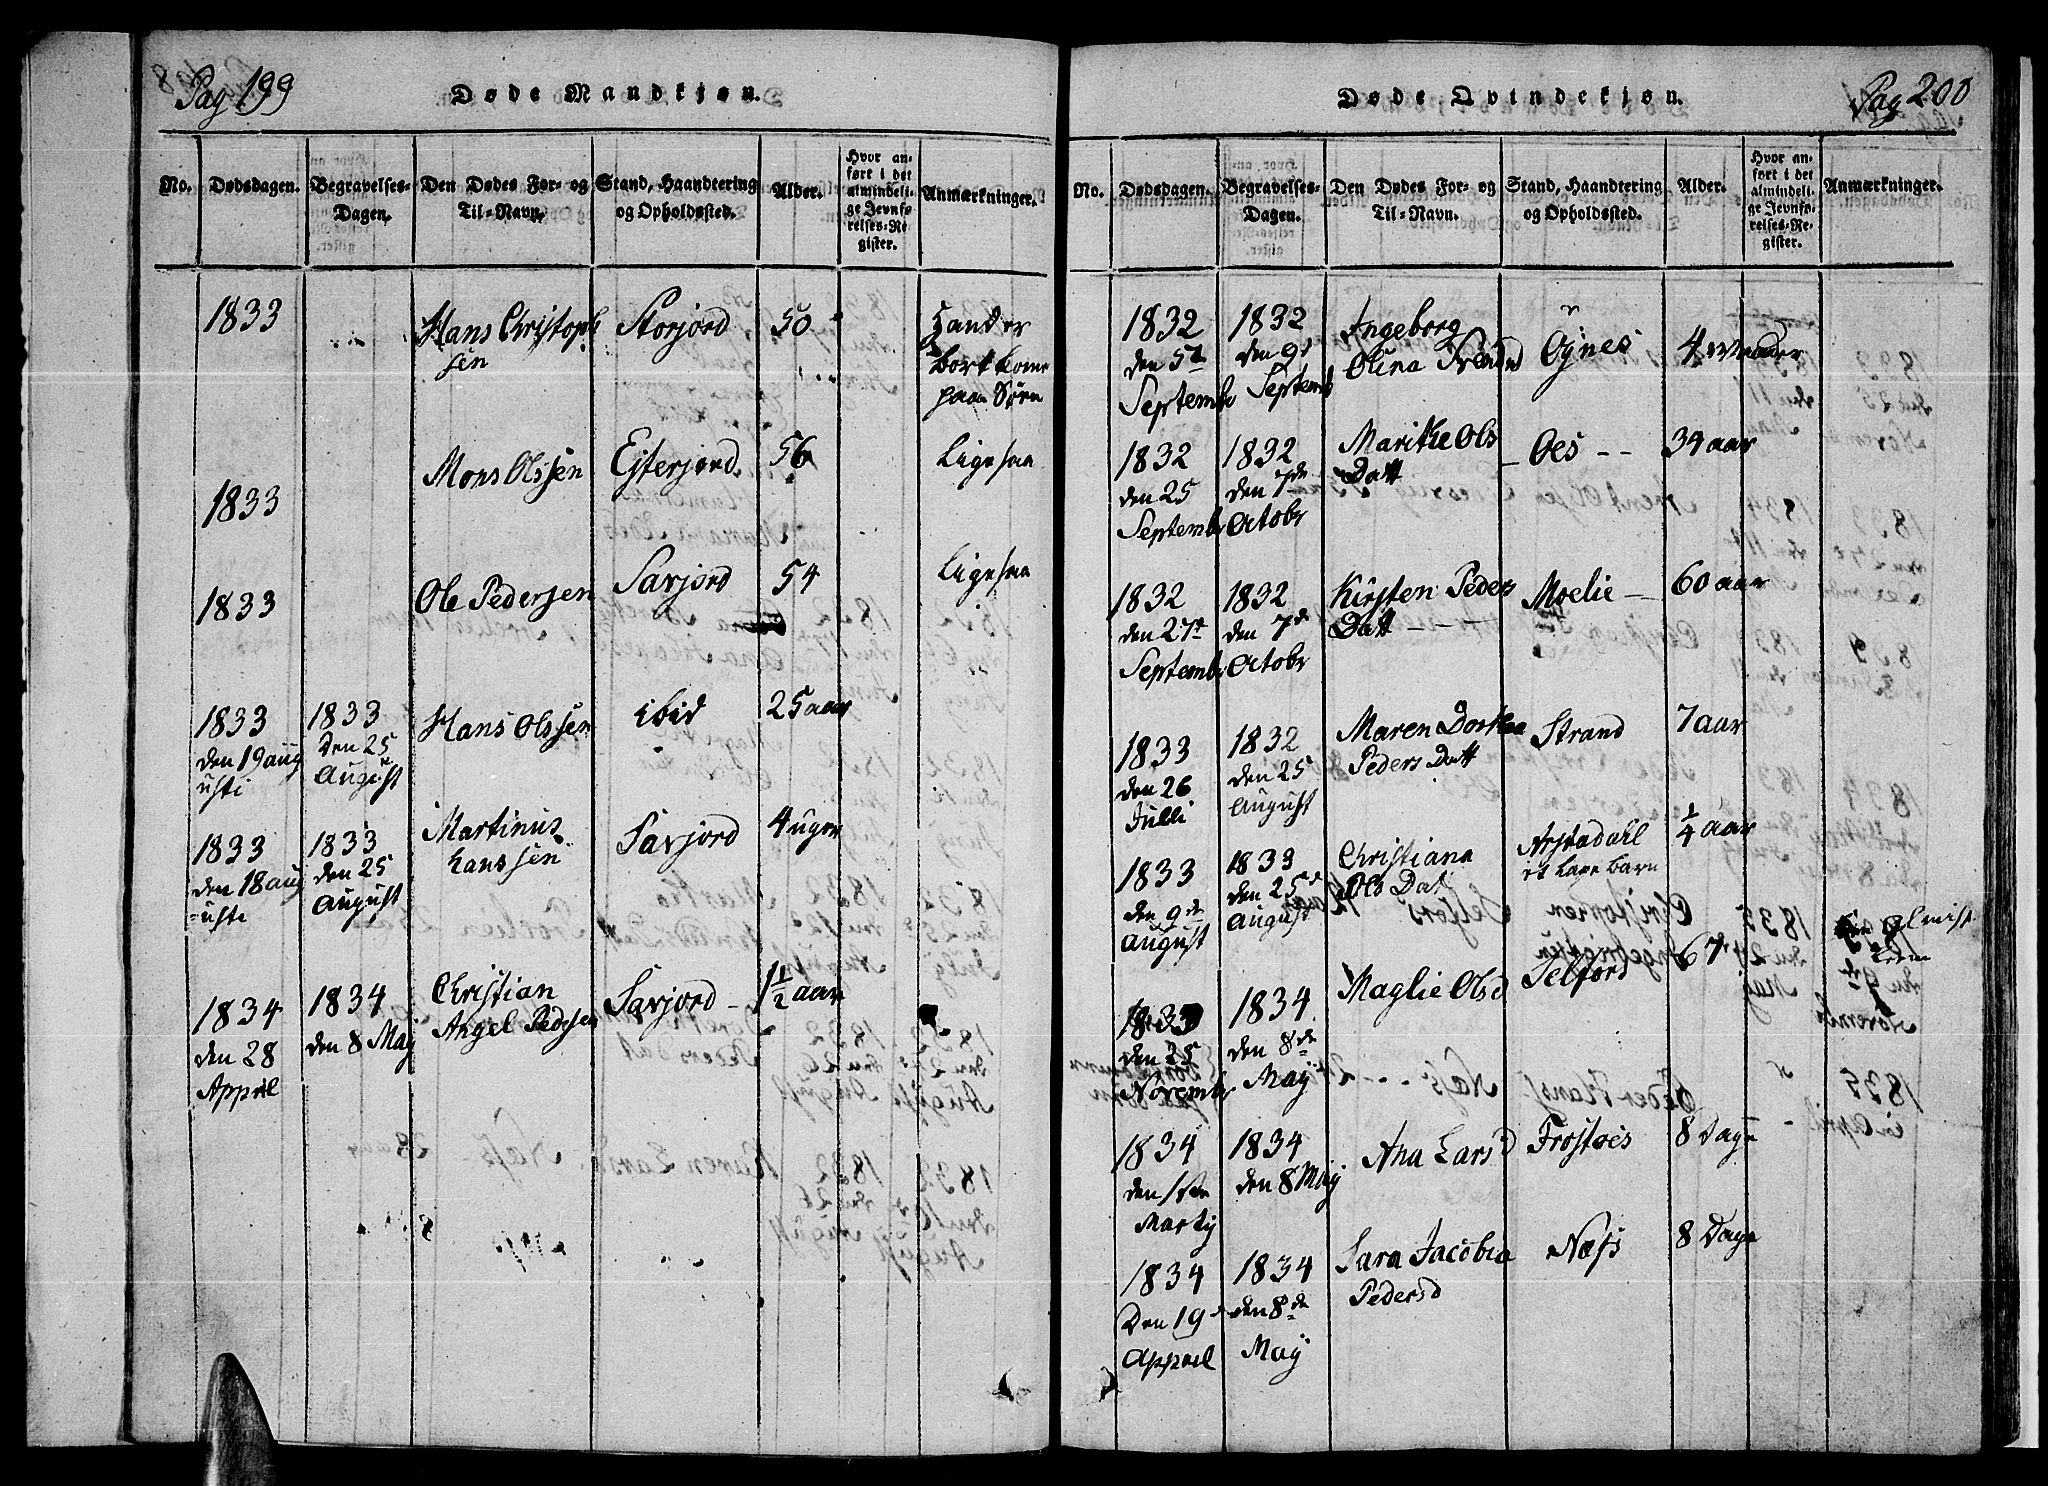 Pag 199
Døde Mandkjøn.
No.
Dødsdagen.
Begravelses-
Dagen.
Den Dødes For- og
Til-Navn.
Stand, Haandtering
og Opholdssted.
Alder.
Hvor an-
ført i det
almindeli-
ge Jevnfø-
relses-Re-
gister.
Anmærkninger.
1833
Hans Christoph
sen
Storjord
50
Hand er
bortkome
paa Søen
1833
Mons Olssen
Ejterjord
56
Ligesaa
1833
Ole Pedersen
Savjord
54
Ligesaa
1833
den 19 aug
usti
1833
Den 25
August
Hans Olssen
ibid
25 aar
1833
den 18 aug
usti
1833
den 25
August
Martinus
Hanssen
Savjord
4 uger
1834
den 28
Appril
1834
den 8 Maj
Christian
Angel Pedersen
Savjord
1½ aar
Pag 200
Døde Qvindekjøn.
No.
Dødsdagen.
Begravelses-
Dagen.
Den Dødes For- og
Til-Navn.
Stand, Haandtering
og Opholdssted.
Alder.
Hvor an-
ført i det
almindeli-
ge Jevnfø-
relses-Re-
gister.
Anmærkninger.
1832
den 5t
Septembr
1832
den 9d
Septemb
Ingeborg
Olina
Øynes
4
1832
den 25
Septembr
1832
den 7de
Octobr
Marithe Ols
Datt
Oes
34 aar
1832
den 27d
Septembr
1832
den 7d
Octobr
Kirsten Peders
Datt
Moelie
60 aar
1833
den 26
Julli
1832
den 25
August
Maren Dorthea
Peders Datt
Strand
7 aar
1833
den 9de
August
1833
den 25d
August
Christiana
Ols Dat
Arstadahl
et Lare Barn
¼ aar
1833
den 25
Novembr
1834
den 8de
May
Maglie Olsd
Selford
67
1834
den
Martij
1834
den 8 Maij
Ana Larsd
Frostøes
8 Dage
1834
Den 19
Appril
1834
den 8de
May
Sara Jacobia
Pedersd
Næss
8 Dage